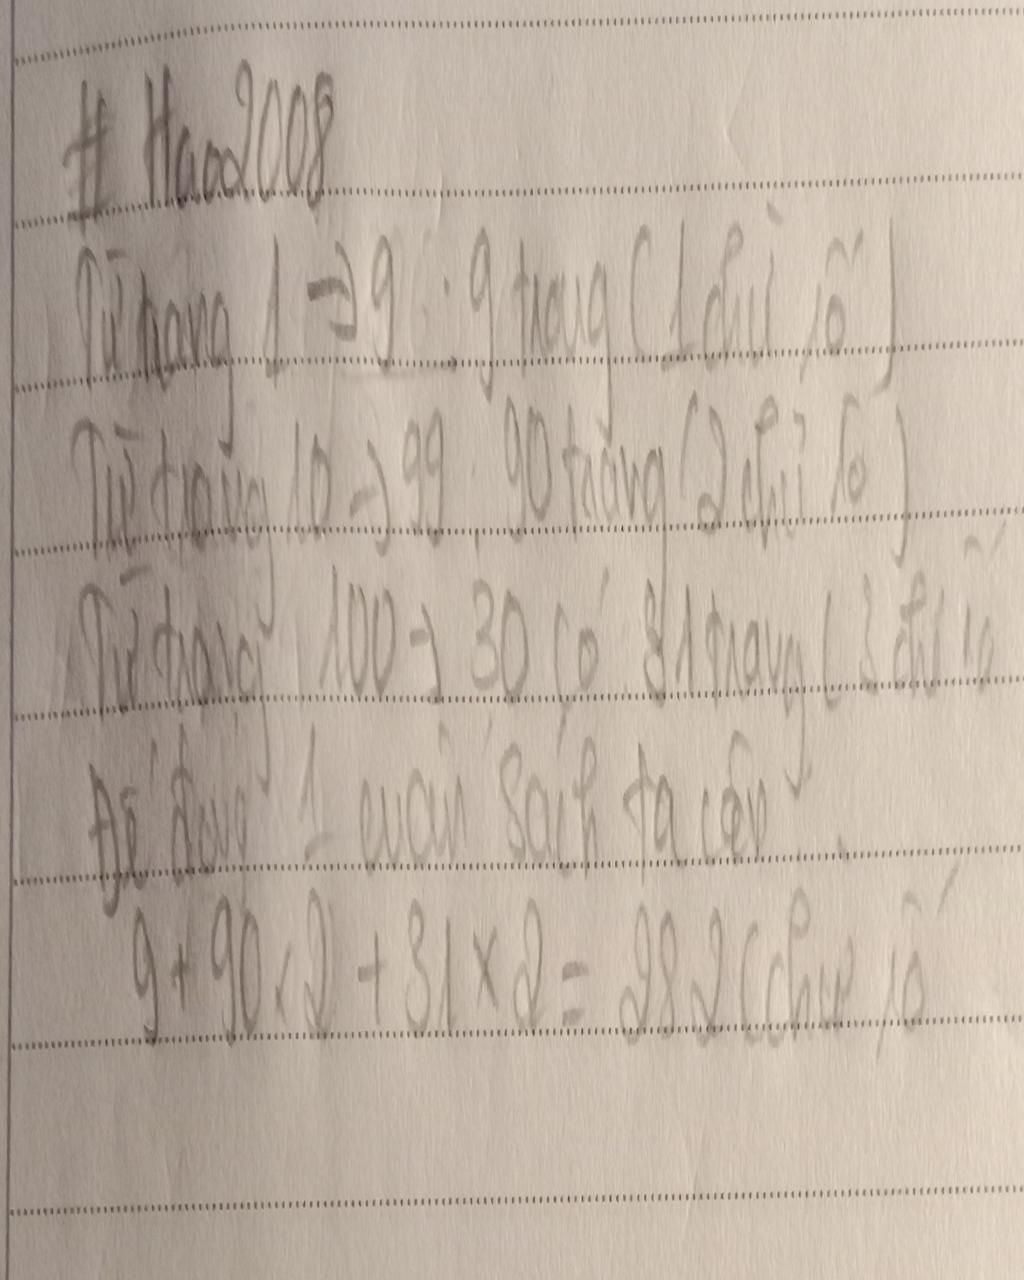 # Haoa2008
Từ trang 1 → 9 : 9 trang (1 chữ số)
Từ trang 10 → 99 : 90 trang (2 chữ số)
Từ trang 100 → 30 có 31 trang (3 chữ số
Để đóng 1 quấn sách ta cần
9 + 90 x 2 + 31 x 2 = 282 (chữ số